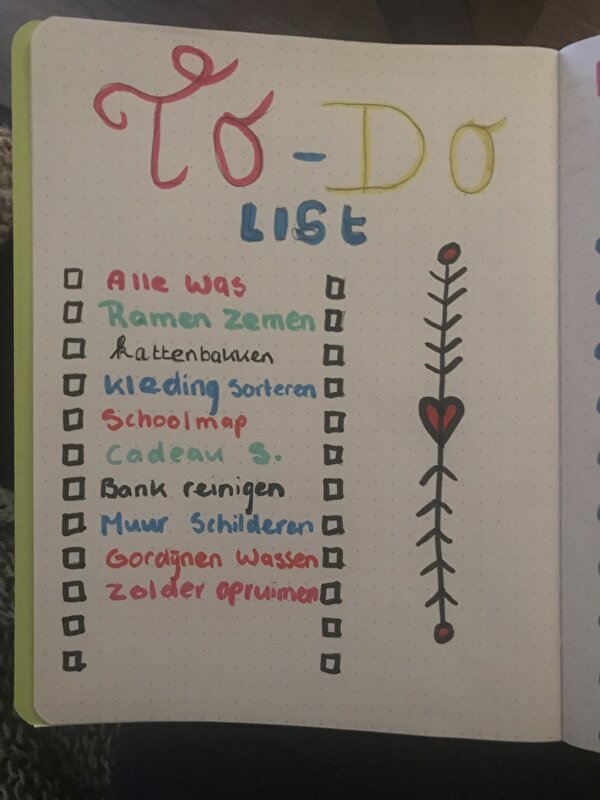 To-Do
List
Alle was
Ramen zemen
kattenbakken
kleding sorteren
Schoolmap
Cadeau S.
Bank reinigen
Muur Schilderen
Gordijnen wassen
Zolder opruimen